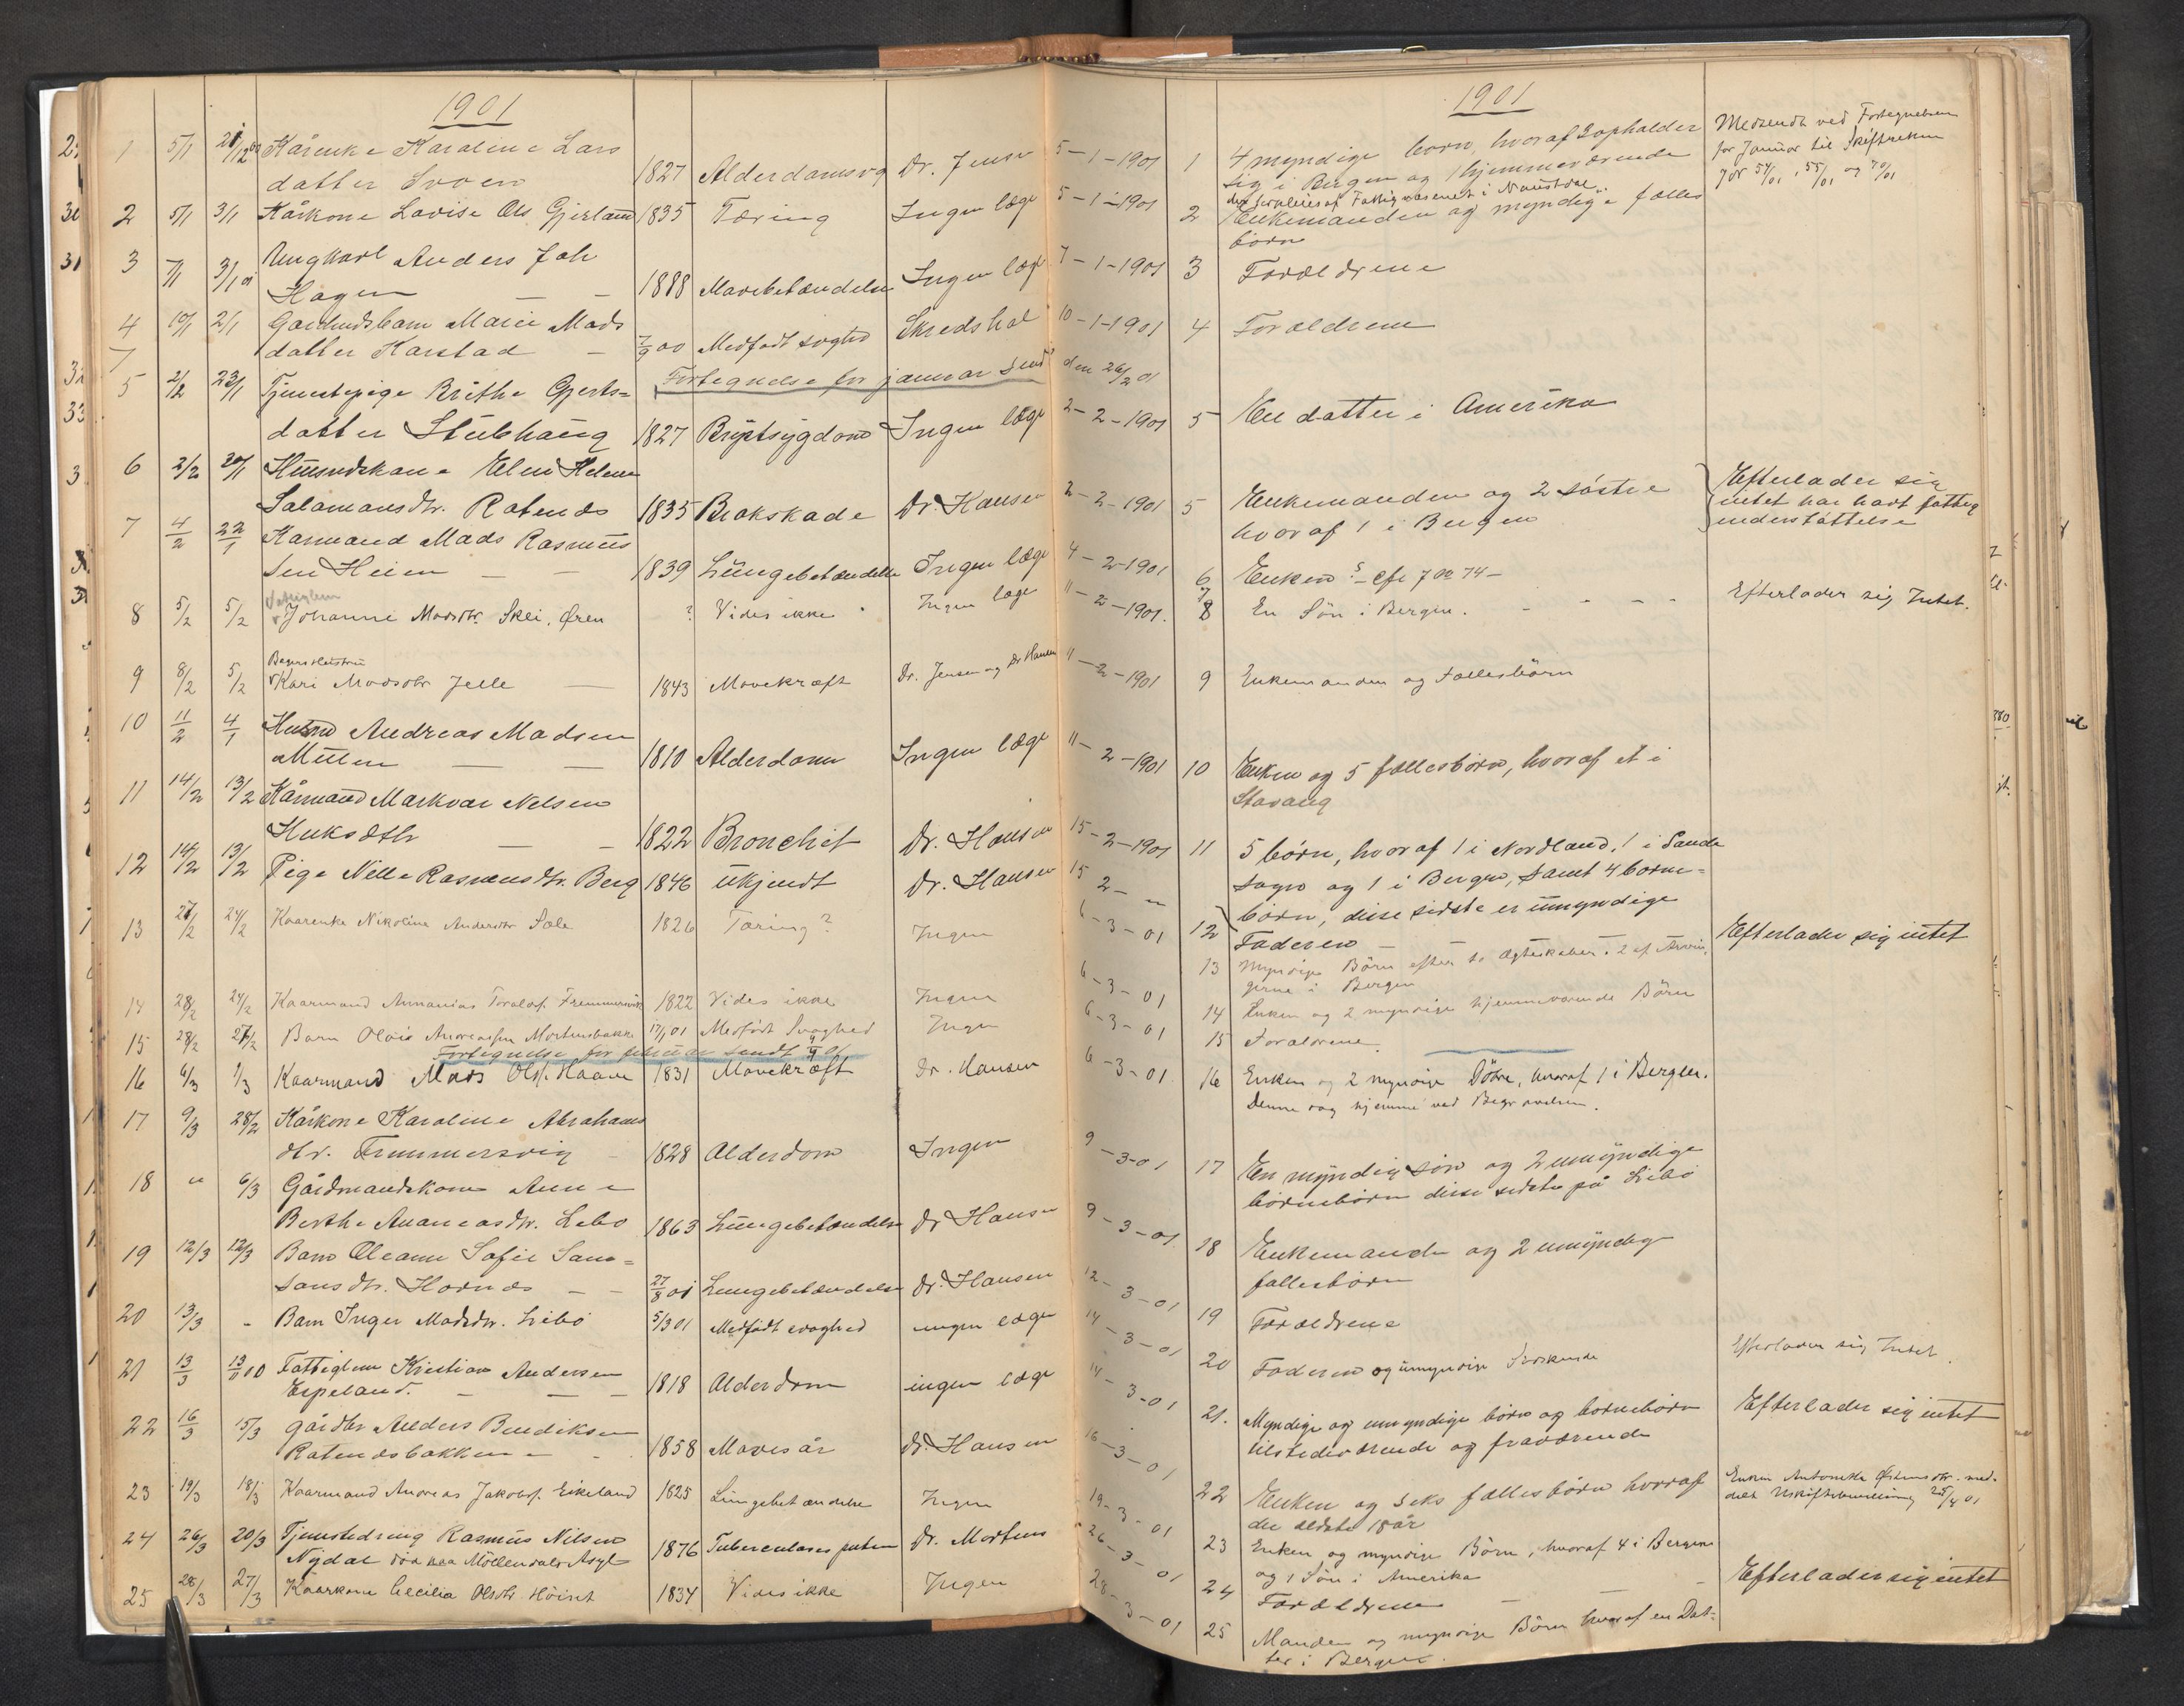 1901
1 5/1 Kårenke Karoline Lars
datter Svoen 1827 Alderdomsvag Dr. Jensen
2 5/1 3/1 Kårkone Lovise Ols Gjerland 1835 Tæring Ingen læge
3 7/1 3/1 01 Ungkarl Anders Joh
Hagen 1888 Mavebetændelse Ingen læge
4 10/1 2/1 Gårdmdsbarn Marie Mads
datter Karstad 7/9 00 Medfødt svaghed
Fortegnelse for januar send den 26/2 01
5 2/2 23/1 Tjenestepige Brithe Gjerts=
datter Stubhaug 1827 Brystsygdom Ingen læge
6 2/2 20/1 Husmdskone Elen Helene
Salamonsdtr. Ratends 1835 Brokskade Dr. Hansen
7 4/2 22/1 Kårmand Mads Rasmus
sen Heien 1839 Lungebetændelse Ingen læge
Fattiglem
8 5/2 5/2 Johanne Madsdtr. Skei, Øren ? Vides ikke Ingen læge
9 8/2 5/2 Kari Madsdtr Jelle 1843 Mavekræft Dr. Jensen og Dr Hansen
10 11/2 4/1 Husmd Andreas Madsen
Mülen 1810 Alderdom Ingen læge
11 14/2 13/2 Kårmand Markvar Nelsen
1822 Bronchit Dr. Hansen
12 14/2 13/2 Pige Nille Rasmusdtr. Berg 1846 ukjendt Dr. Hansen
13 27/2 24/2 Kaarenke Nikoline Andersdtr Sole 1826 Tæring? Ingen
14 28/2 24/2 Kaarmand Annanias Toralds. Fremmersvik 1822 Vides ikke Ingen
15 28/2 27/2 Barn Olvis Andreassen Mortensbakke 17/1 01 Medfødt Svaghed Ingen
Fortegnelse for februar sendt 01
16 6/3 1/3 Kaarmand Mads Ols. Haave 1831 Mavekræft Dr. Hansen
17 9/3 28/2 Kårkone Karoline Abrahams
dtr. Fremmersvig 1828 Alderdom Ingen
18 " 6/3 Gårdmandskone Anne
Berthe Ananiasdtr. Lebo 1863 Lungebetændelse Dr Hansen
19 12/3 12/3 Barn Oleanne Sofie Sam=
sonsdtr. Hornds 27/8 00 Lungebetændelse Dr. Hansen
20 13/3 - Barn Inger Madsdtr. Liebo 5/3 01 Medfødt svaghed ingen læge
21 13/3 00 Fattiglem Kristian Andersen
Espeland. 1818 Alderdom ingen læge
22 16/3 15/3 Gårdbr Anders Bendiksen
Ratendsbakken 1858 Mavesår Dr. Hansen
23 19/3 18/3 Kaarmand Andreas Jakobs. Eikeland 1825 Lungebetændelse Ingen
24 26/3 20/3 Tjenestedreng Rasmus Nilsen
Nydal død paa Möllendals Asyl 1876 Dr. Martens
25 28/3 27/3 Kaarkone Cecilia Olsdtr Hoiset 1834 Vides ikke Ingen
1901
5-1-1901 1 4 myndige børn, hvoraf 2 opholder
sig i Bergen og 1 hjemmeværende
af Fattigvæsenet i Naustdal
Medsendt ved Fortegnelsen
for Januar til Skifteretten
5-1-1901 2 Enkemanden og myndige fælles
børn
7-1-1901 3 Forældrene
10-1-1901 4 Forældrene
2-2-1901 5 En datter i Amerika
2-2-1901 5 Enkemanden og 2 søstre
hvoraf 1 i Bergen
Efterlader sig
intet har havt fattig
understøttelse
4-2-1901 6 Enken
7
11-2-1901. 8 En Søn i Bergen. Efterlader sig Intet.
11-2-1901 9 Enkemanden og Fællesbørn
11-2-1901 10 Enken og 5 fællesbørn, hvoraf et i
Stavang
15-2-1901 11 5 børn, hvoraf 1 i Nordland, 1 i Sande
sogn og 1 i Bergen, samt 4 børne=
børn, disse sidste er umyndige
15 2 - " 12 Faderen Efterlader sig intet
6-3-01 13 Myndige Børn efter to Ægteskaber. 2 af Arvin
gerne i Bergen
6-3-01 14 Enken og 2 myndige hjemmeværende Børn
6-3-01 15 Forældrene
6-3-01 16 Enken og 2 myndige Døtre, hvoraf 1 i Bergen.
Denne dog hjemme ved Begravelsen.
9-3-01 17 En myndig søn og 2 umyndige
børnebørn disse sidste på Liebo
9-3-01 18 Enkemanden og 2 umyndige
fællesbørn
12-3-01 19 Forældrene
14-3-01 20 Faderen og umyndige Søskende Efterlader sig Intet.
14-3-01 21. Myndige og umyndige børn og børnebørn
tilstedeværende og fraværende Efterlader sig intet
16-3-01 22 Enken og seks fællesbørn hvoraf
det ældste 18 år
Enken Antonette Østensdtr. med-
delt Uskiftebevilling 25/4 01
19-3-01 23 Enken og myndige Børn, hvoraf 4 i Bergen
og 1 Søn i Amerika
26-3-01 24 Forældrene Efterlader sig intet
28-3-01 25 Manden og myndige Børn hvoraf en Dat-
ter i Bergen.